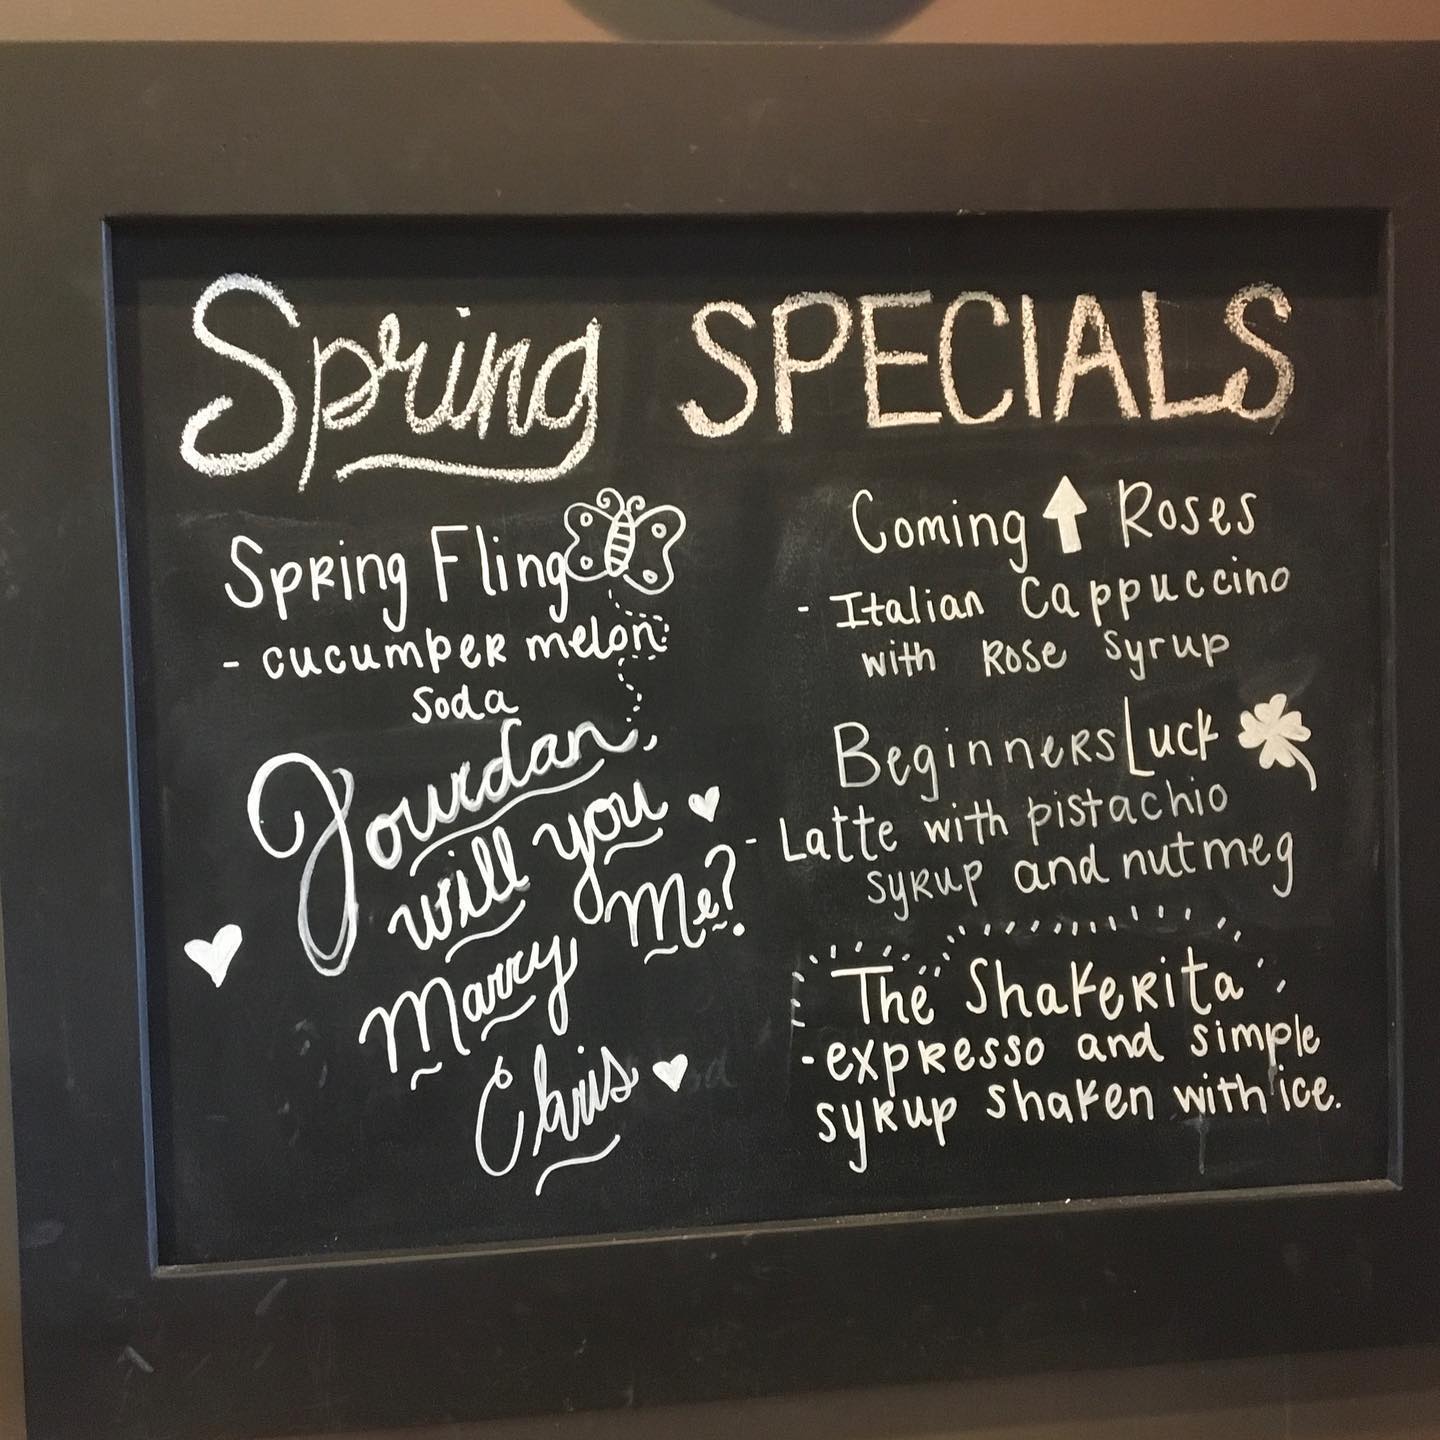 Spring SPECIALS
Spring Fling
- cucumber melon
soda
Jourdan,
will you
Marry Me?
Chris
Coming ↑ Roses
- Italian Cappuccino
with Rose Syrup
Beginners Luck
- Latte with pistachio
syrup and nutmeg
The Shakerita
- expresso and simple
syrup shaken with ice.